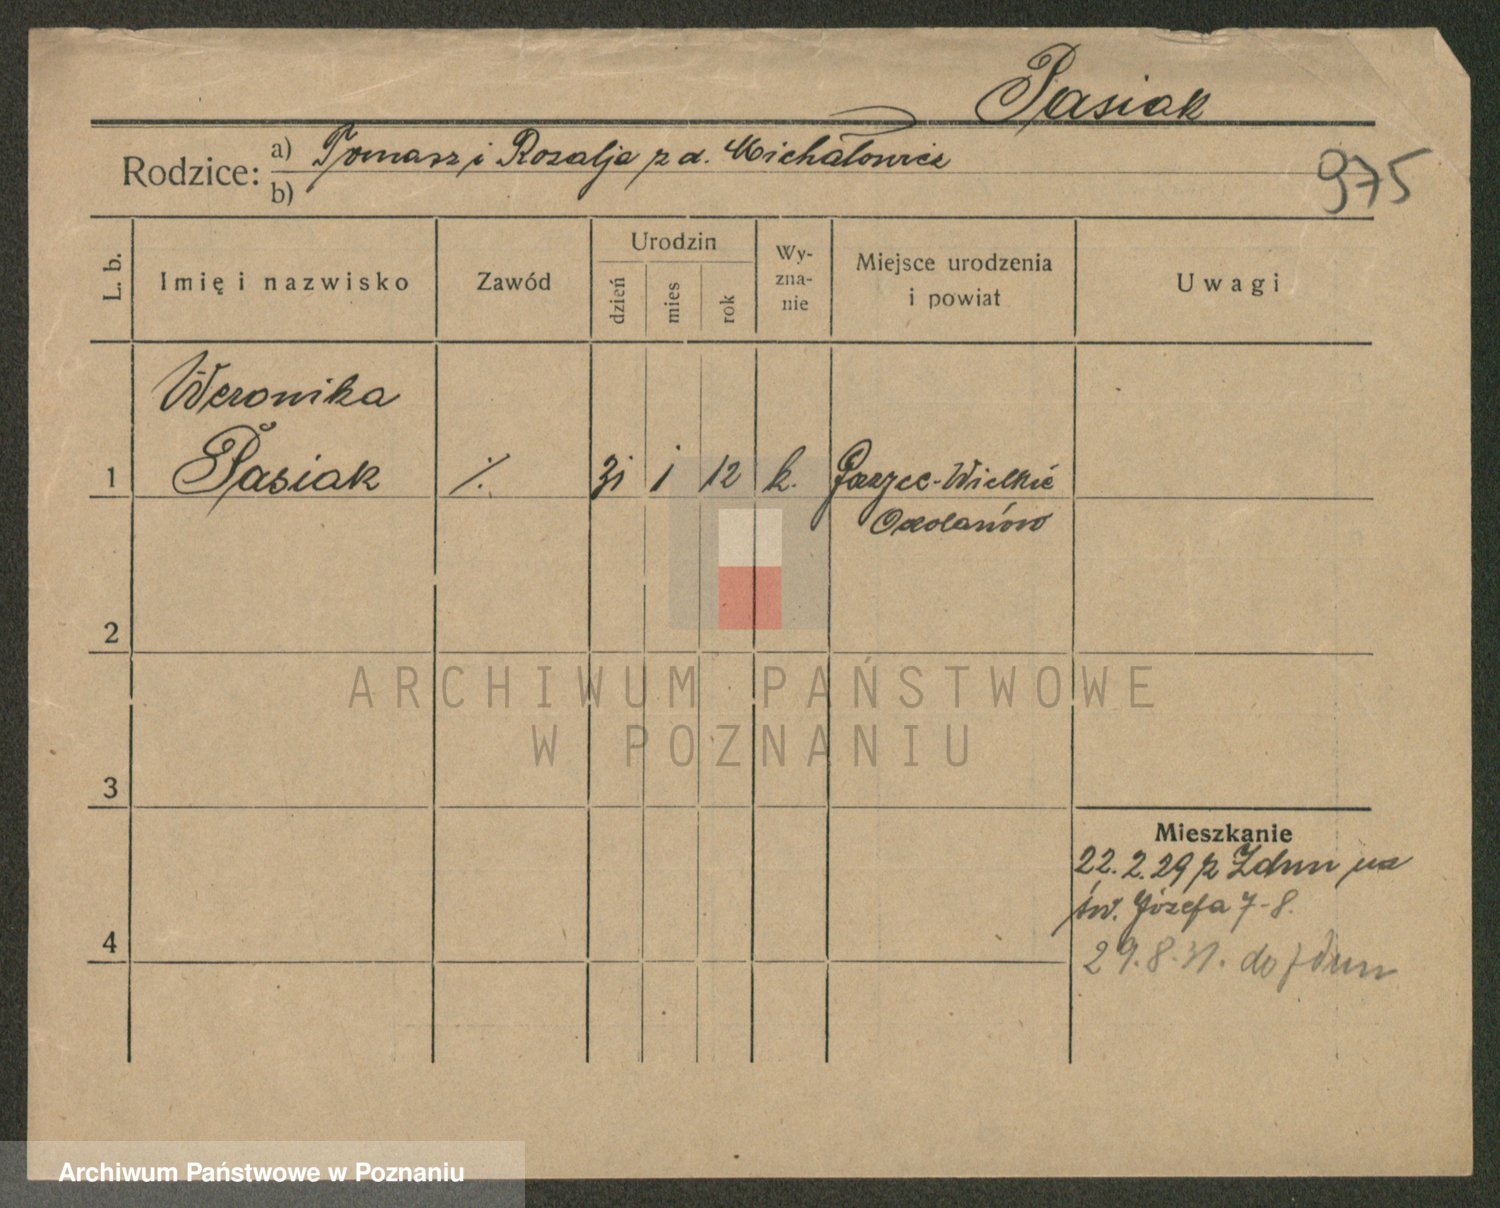 Pasiak
Rodzice: a) Tomasz i Rozalja z d. Michałowicz
b)
975
L. b.
Imię i nazwisko
Zawód
Urodzin
dzień
mies
rok
Wy-
zna-
nie
Miejsce urodzenia
i powiat
Uwagi
Weronika
1 Pasiak ./. 31 1 12 k. Janzec-Wielkie
Odolanów
2
3
4
Mieszkanie
22.2.29 z Zdun na
św. Józefa 7-8.
29.8.31. do Zdun
ARCHIWUM PAŃSTWOWE
W POZNANIU
Archiwum Państwowe w Poznaniu